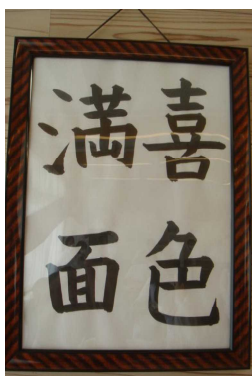 喜色
満面